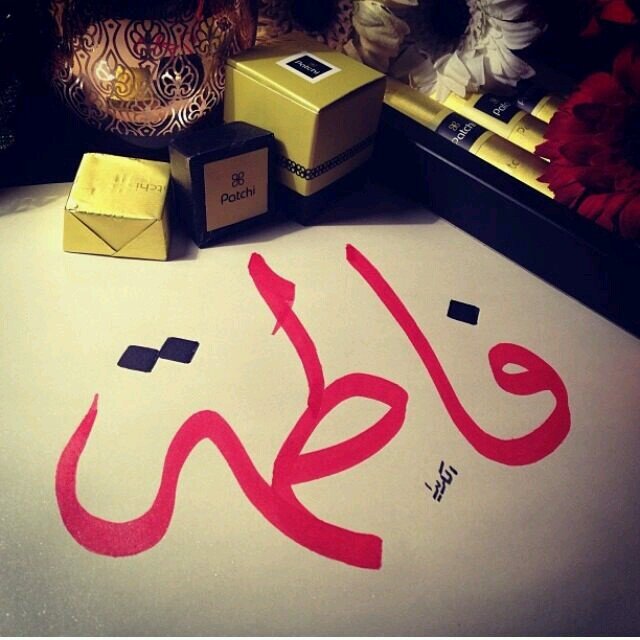 Patchi
Patchi
Patchi
Patchi
فاطمة